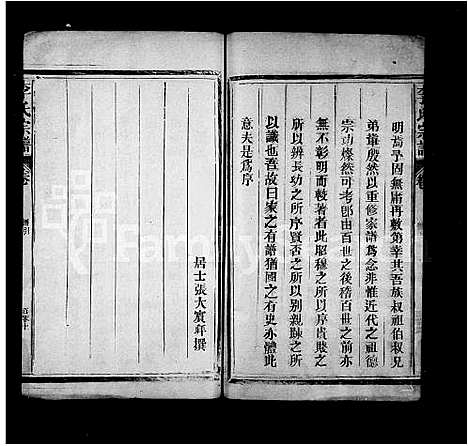 明為予固無庸再數第幸其吾族叔祖伯叔兄
弟輩殷然以重修家譜為念非惟近代之祖德
宗功燦然可考即由百世之後稽百世之前亦
無不彰明而較著者此昭穆之所以序貴賤之
所以辨長幼之所序賢否之所以別親踈之所
以識也吾故曰家之有譜猶國之有史亦體此
意夫是為序
居士張大賓拜撰
李氏宗譜
卷